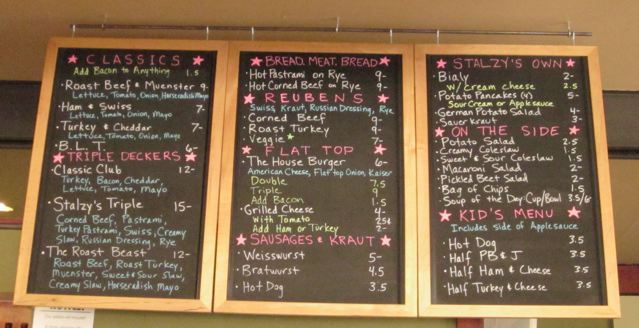 CLASSICS
Add Bacon to Anything 1.5
Roast Beef & Muenster 9-
Lettuce, Tomato, Onion, Horseradish Mayo
Ham & Swiss 7-
Lettuce, Tomato, Onion, Mayo
Turkey & Cheddar 7-
Lettuce, Tomato, Onion, Mayo
B.L.T. 6-
TRIPLE DECKERS
Classic Club 12-
Turkey, Bacon, Cheddar,
Lettuce, Tomato, Mayo
Stalzy's Triple 15-
Corned Beef, Pastrami,
Turkey Pastrami, Swiss, Creamy
Slaw, Russian Dressing, Rye
The Roast Beast 12-
Roast Beef, Roast Turkey,
Muenster, Sweet & Sour Slaw,
Creamy Slaw, Horseradish Mayo
BREAD. MEAT. BREAD
Hot Pastrami on Rye 9-
Hot Corned Beef on Rye 9-
REUBENS
Swiss, Kraut, Russian Dressing, Rye
Corned Beef 9-
Roast Turkey 9-
Veggie 7-
FLAT TOP
The House Burger 6-
American Cheese, Flat top Onion, Kaiser
Double 7.5
Triple 9
Add Bacon 1.5
Grilled Cheese 4-
With Tomato 25¢
Add Ham or Turkey 2-
SAUSAGES & KRAUT
Weisswurst 5-
Bratwurst 4.5
Hot Dog 3.5
STALZY'S OWN
Bialy 2-
w/ cream cheese 2.5
Potato Pancakes (4) 5-
Sour Cream or Applesauce
German Potato Salad 4-
Sauer Kraut 3-
ON THE SIDE
Potato Salad 2.5
Creamy Coleslaw 1.5
Sweet & Sour Coleslaw 1.5
Macaroni Salad 2-
Pickled Beet Salad 2-
Bag of Chips 1.5
Soup of the Day: Cup/Bowl 3.5/6-
KID'S MENU
Includes side of Applesauce
Hot Dog 3.5
Half PB & J 3.5
Half Ham & Cheese 3.5
Half Turkey & Cheese 3.5